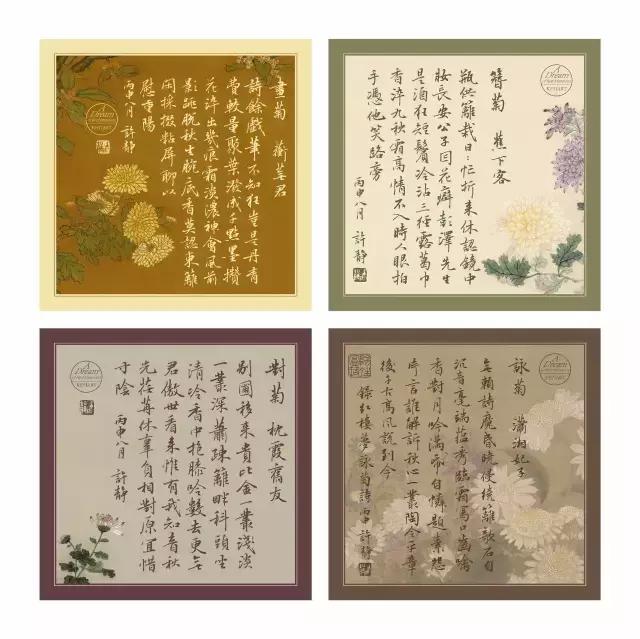 畫菊 蘅蕪君
詩餘戲筆不知狂豈是丹青
費較量聚葉潑成千點墨攢
花染出幾痕霜淡濃神會風前
影跳脫秋生腕底香莫認東籬
閑採掇粘屏聊以
慰重陽
丙申八月 許靜
A Dream
簪菊 蕉下客
瓶供籬栽日日忙折來休認鏡中
妝長安公子因花癖彭澤先生
是酒狂短鬢冷沾三徑露葛巾
香染九秋霜高情不入時人眼拍
手憑他笑路旁
丙申八月 許靜
A Dream
對菊 枕霞舊友
別圃移來貴比金一叢淺淡
一叢深蕭疎籬畔科頭坐
清冷香中抱膝吟數去更無
君傲世看來惟有我知音秋
光荏苒休辜負相對原宜惜
寸陰 丙申八月 許靜
A Dream
詠菊 瀟湘妃子
無賴詩魔昏曉侵繞籬欹石自
沉音毫端蘊秀臨霜寫口齒噙
香對月吟滿紙自憐題素怨
片言誰解訴秋心一叢陶令平章
後千古高風說到今
錄紅樓夢詠菊詩丙申許靜
A Dream